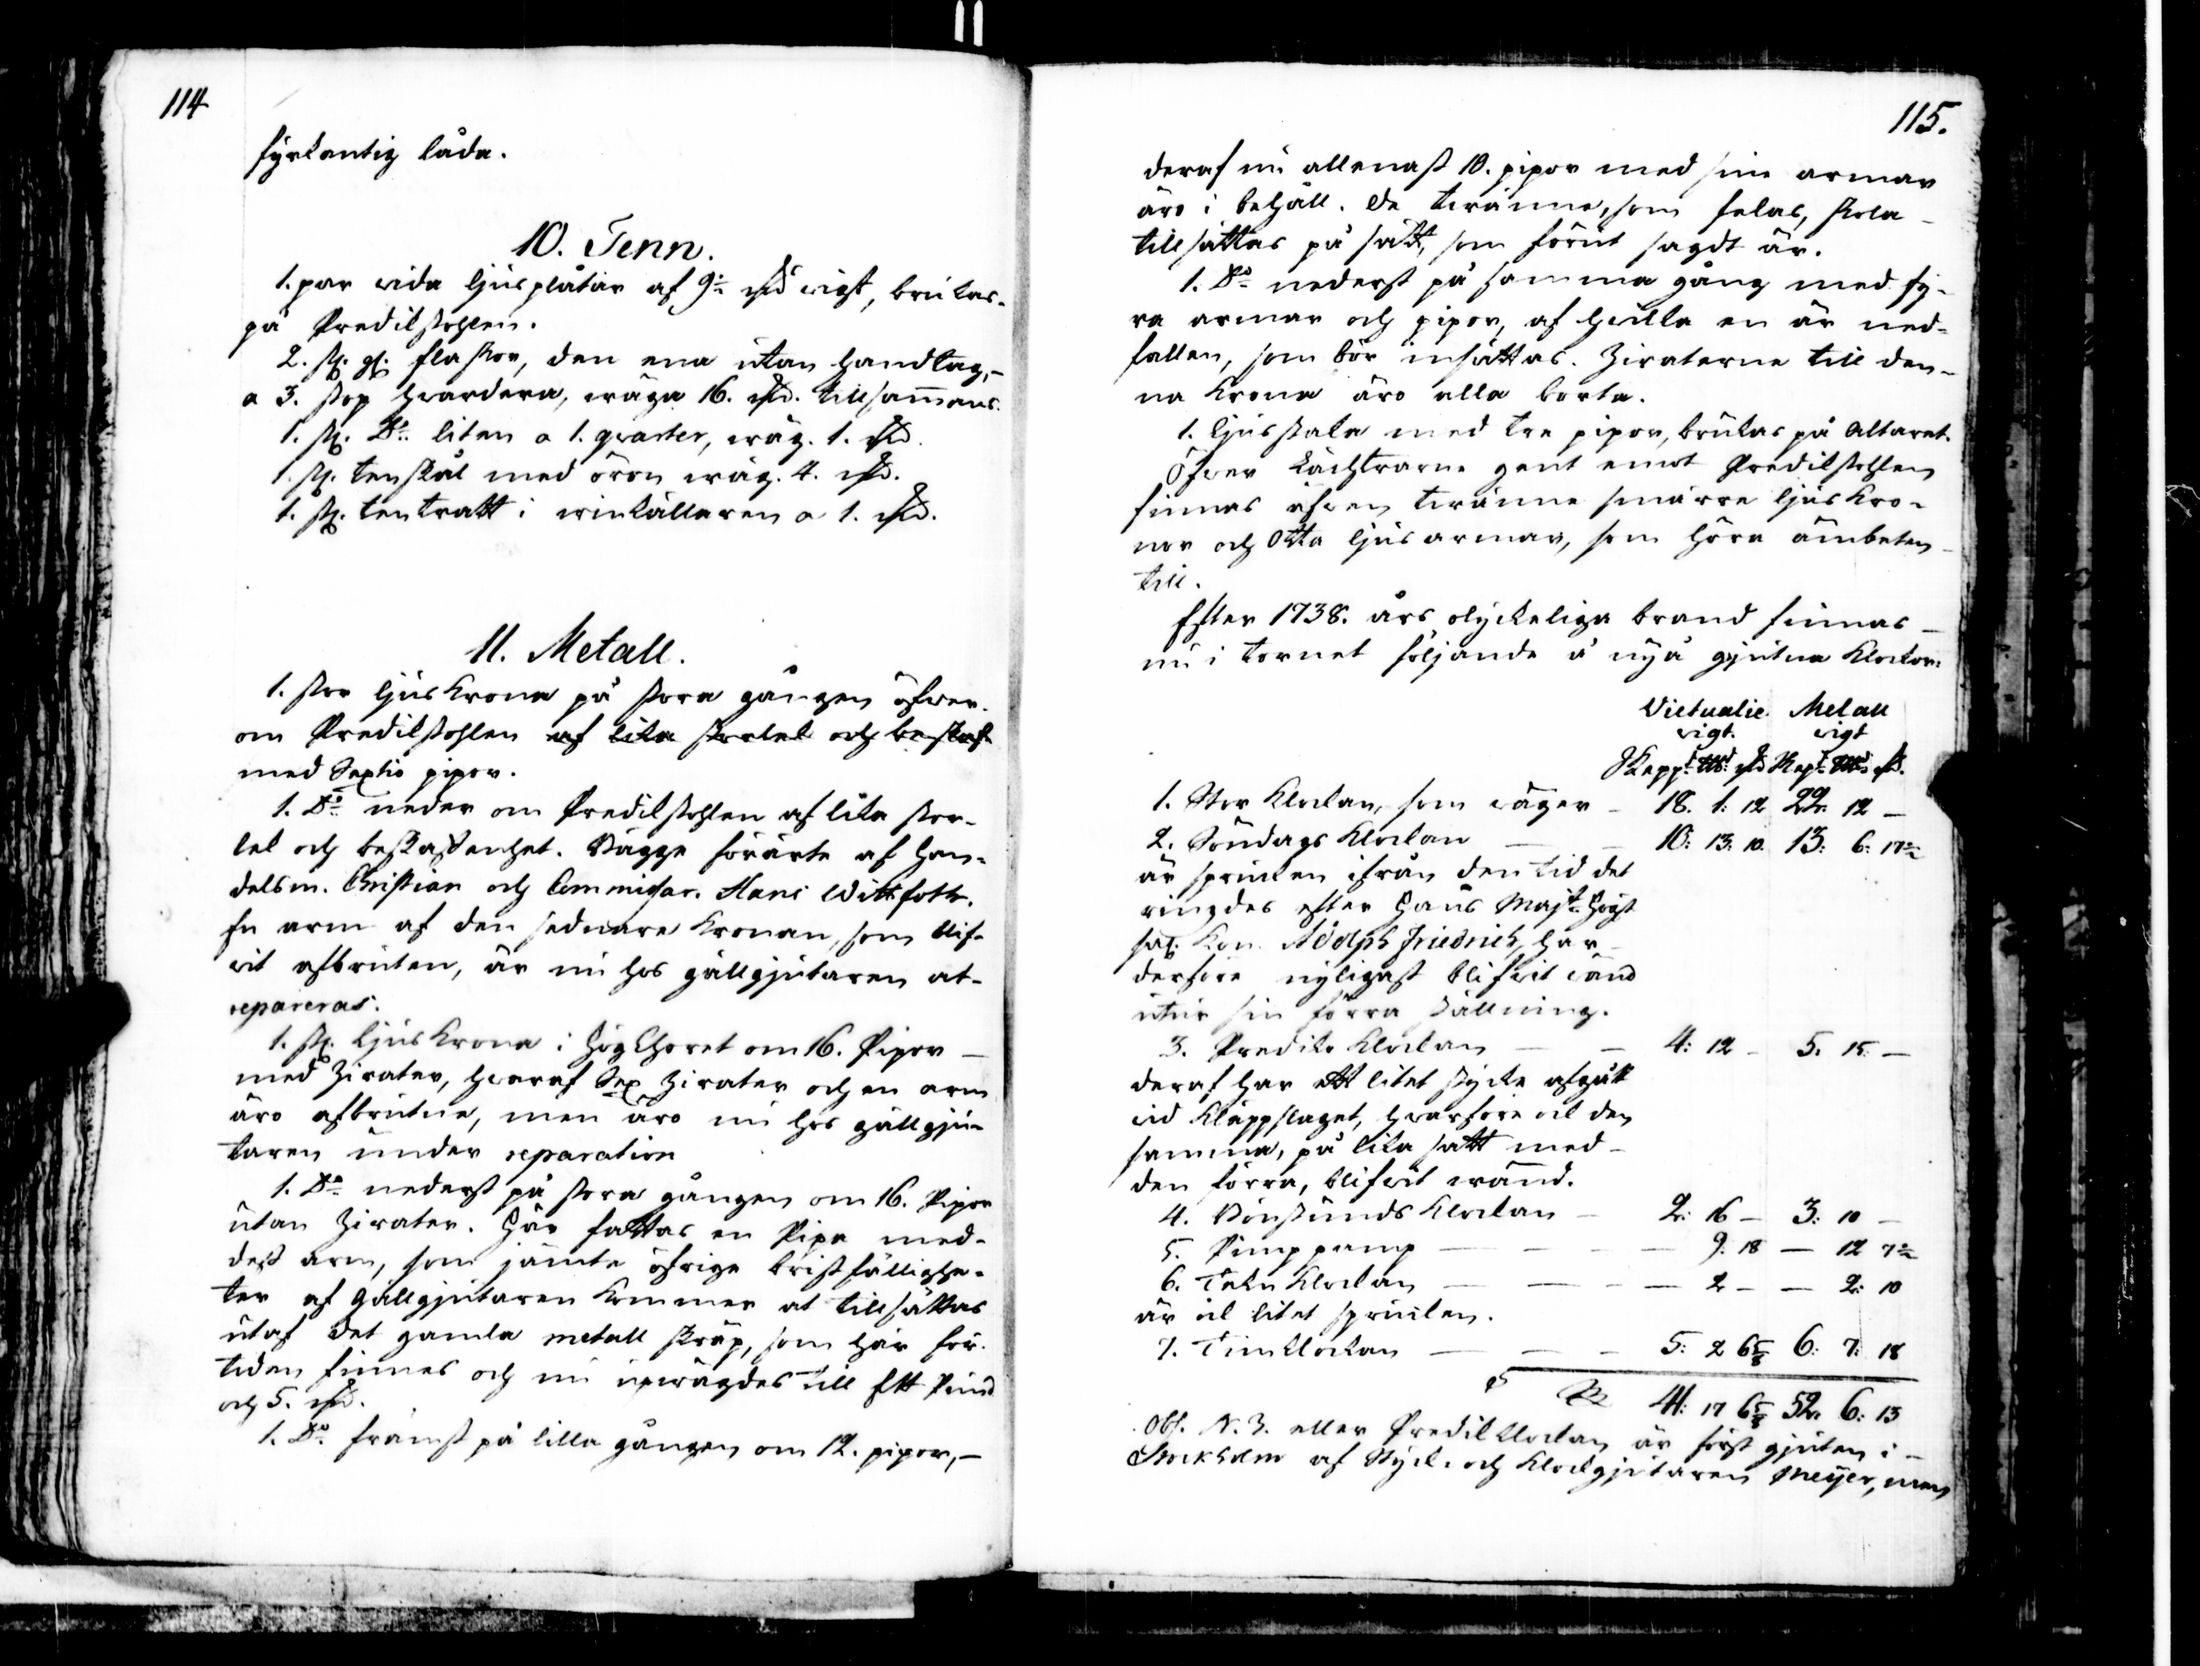 114
fyrkantig låda.
10. Tenn.
1. par wida ljusplåtar af 9½ ℔ wigt, brukas
på Predikstohlen.
2. st. flaskor, den ena utan handtag,
a 3. stop hvardera, wäga 16. ℔. tillsam̄ans.
1. st. Do liten a 1. qvarter, wäg. 1. ℔.
1. st. tenskål med öron wäg. 4. ℔.
1. st. tentratt i winkällaren a 1. ℔.
11. Metall.
1. stor ljus Krona på stora gången öfwer
om Predikstohlen af lika storlek och beskaf.
med Sextio pipor.
1. Do neder om Predikstohlen af lika stor-
lek och beskaffenhet. Bägge förärte af han-
delsm. Christian och Commissar. Hans Wittfoth.
En arm af den sednare Kronan, som blif-
wit afbruten, är nu hos gällgjutaren at
repareras.
1. st. ljus Krona i Hög Choret om 16. Pipor
med Zirater, hwaraf Sex Zirater och en arm
äro afbrutne, men äro nu hos gällgju-
taren under reparation
1. Do nederst på stora gången om 16. Pipor
utan Zirater. Här fattas en Pipa med
dess arm, som jämte öfrige bristfällighe-
ter af Gällgjutaren kommer at tillsättas
utaf det gamla metall skräp, som här för
tiden finnes och nu upwägdes till Ett Pund
och 5. ℔.
1. Do främst på lilla gången om 12. pipor,
115.
deraf nu allenast 10. pipor med sine armar
äro i behåll. De twänne, som felas, skola
tillsättas på sätt, som förut sagdt är.
1. Do nederst på samma gång med fy-
ra armar och pipor, af hwilka en är ned-
fallen, som bör insättas. Ziraterne till den-
na Krona äro alla borta.
1. ljusstaka med tre pipor, brukas på Altaret.
Öfwer Läcktrarne gent emot Predikstohlen
finnas äfwen twänne smärre ljus Kro-
nor och Otta ljusarmar, som höra ämbeten
till.
Efter 1738. års olyckeliga brand finnas
nu i tornet följande å nyå gjutna Klockor:
Victualie Metall
wigt. wigt
Skepp: ℔ Skep: ℔.
1. Stor Klockan, som wäger – 18. 1: 12 22. 12 –
2. Söndags Klockan – – 10: 13: 10. 13: 6: 17½
är sprucken ifrån den tid det
ringdes efter Hans Majt: Högst
sal. Kon. Adolph Friedrich, har
derföre nyligast blifwit wänd
utur sin förra ställning.
3. Prediko Klockan – – 4: 12 – 5. 15. –
deraf har ett litet stycke afgått
wid Kläppslaget, hwarföre ock den
samma, på lika sätt med
den förra, blifwit wänd.
4. Bönstunds Klockan – 2: 16 – 3: 10 –
5. Pimppamp – – – 9: 18 – 12 7½
6. Takn Klockan – – – 2 – – 2: 10
är ock litet sprucken.
7. Timklockan – – 5: 2 6⅝ 6: 7: 18
41: 17 6⅝ 52. 6: 13
Obs. N. 3. eller Predikklockan är först gjuten i
Stockholm af Styck- och Klockgjutaren Meyer, men